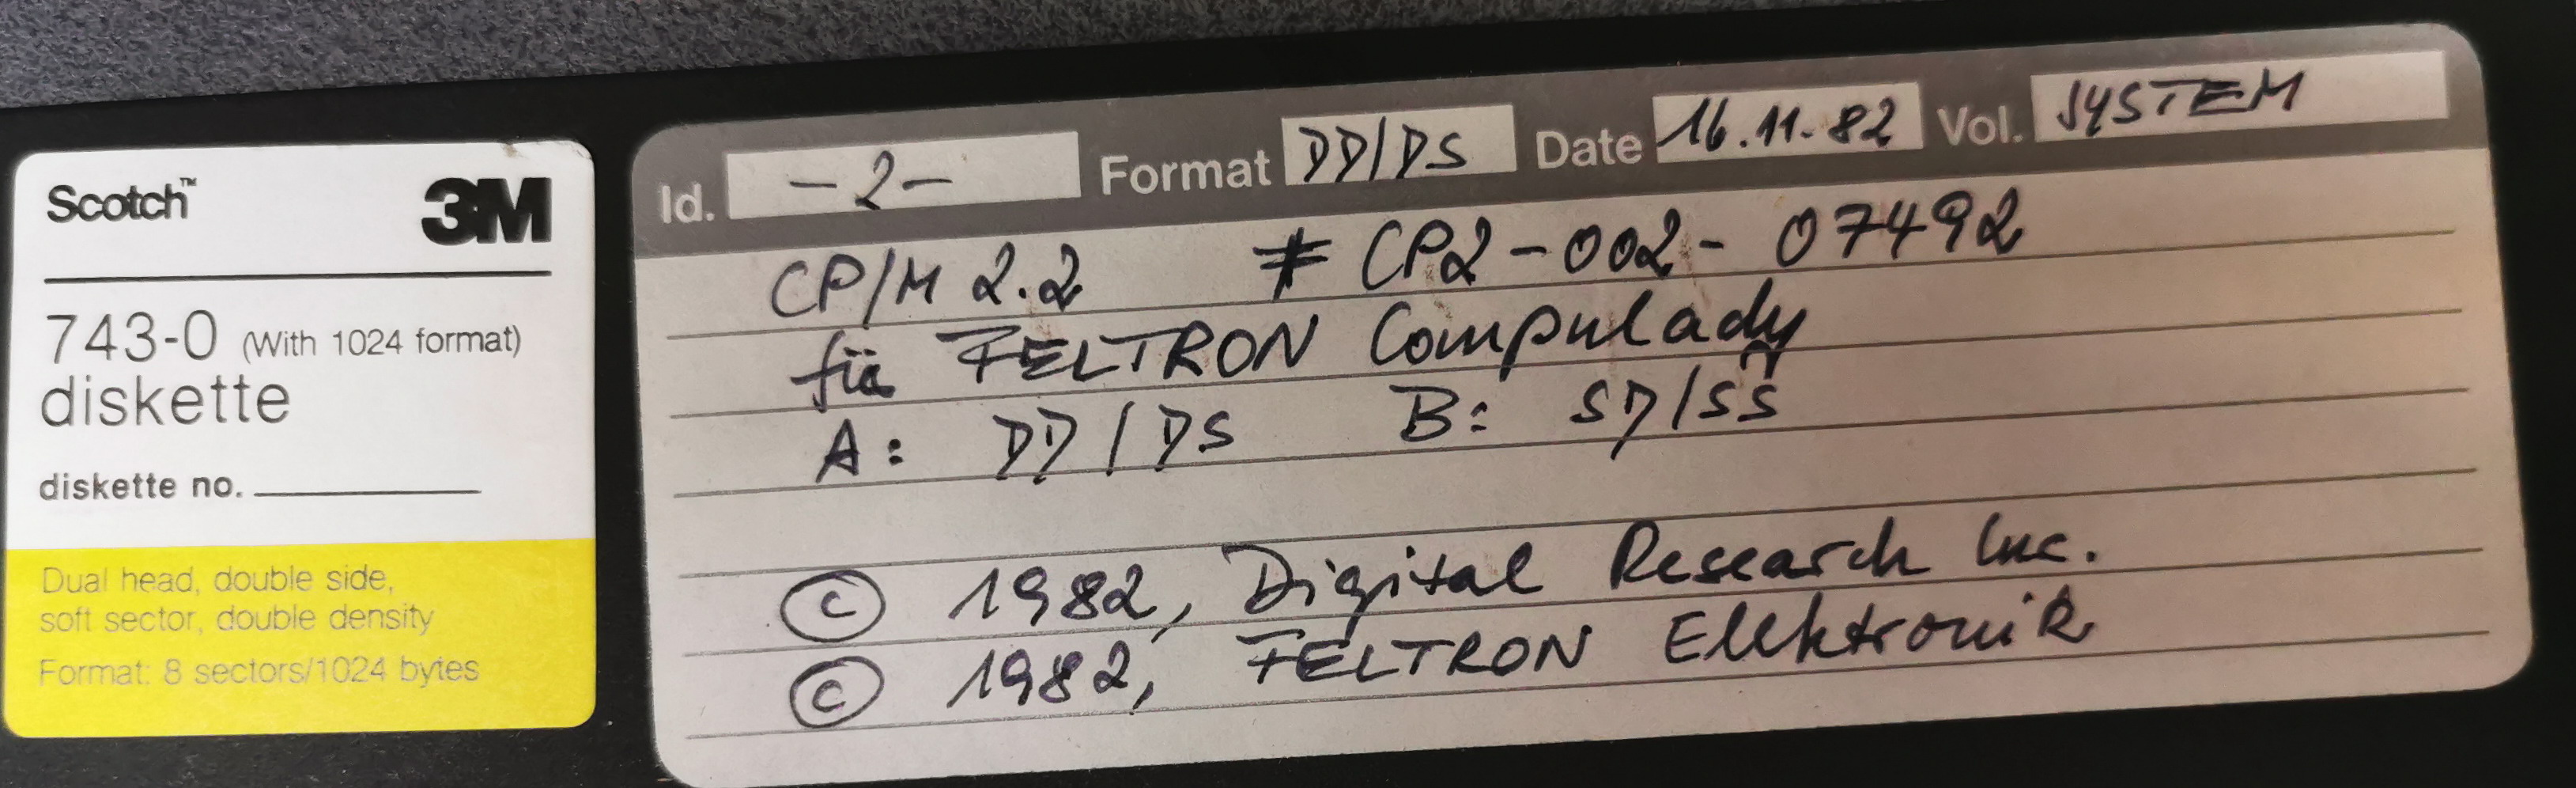 Scotch™ 3M
743-0 (With 1024 format)
diskette
diskette no.
Dual head, double side,
soft sector, double density
Format: 8 sectors/1024 bytes
Id. -2- Format DD/DS Date 16.11.82 Vol. SYSTEM
CP/M 2.2 # CP2-002-07492
für FELTRON Compulady
A: DD/DS B: SD/SS
© 1982, Digital Research Inc.
© 1982, FELTRON Elektronik